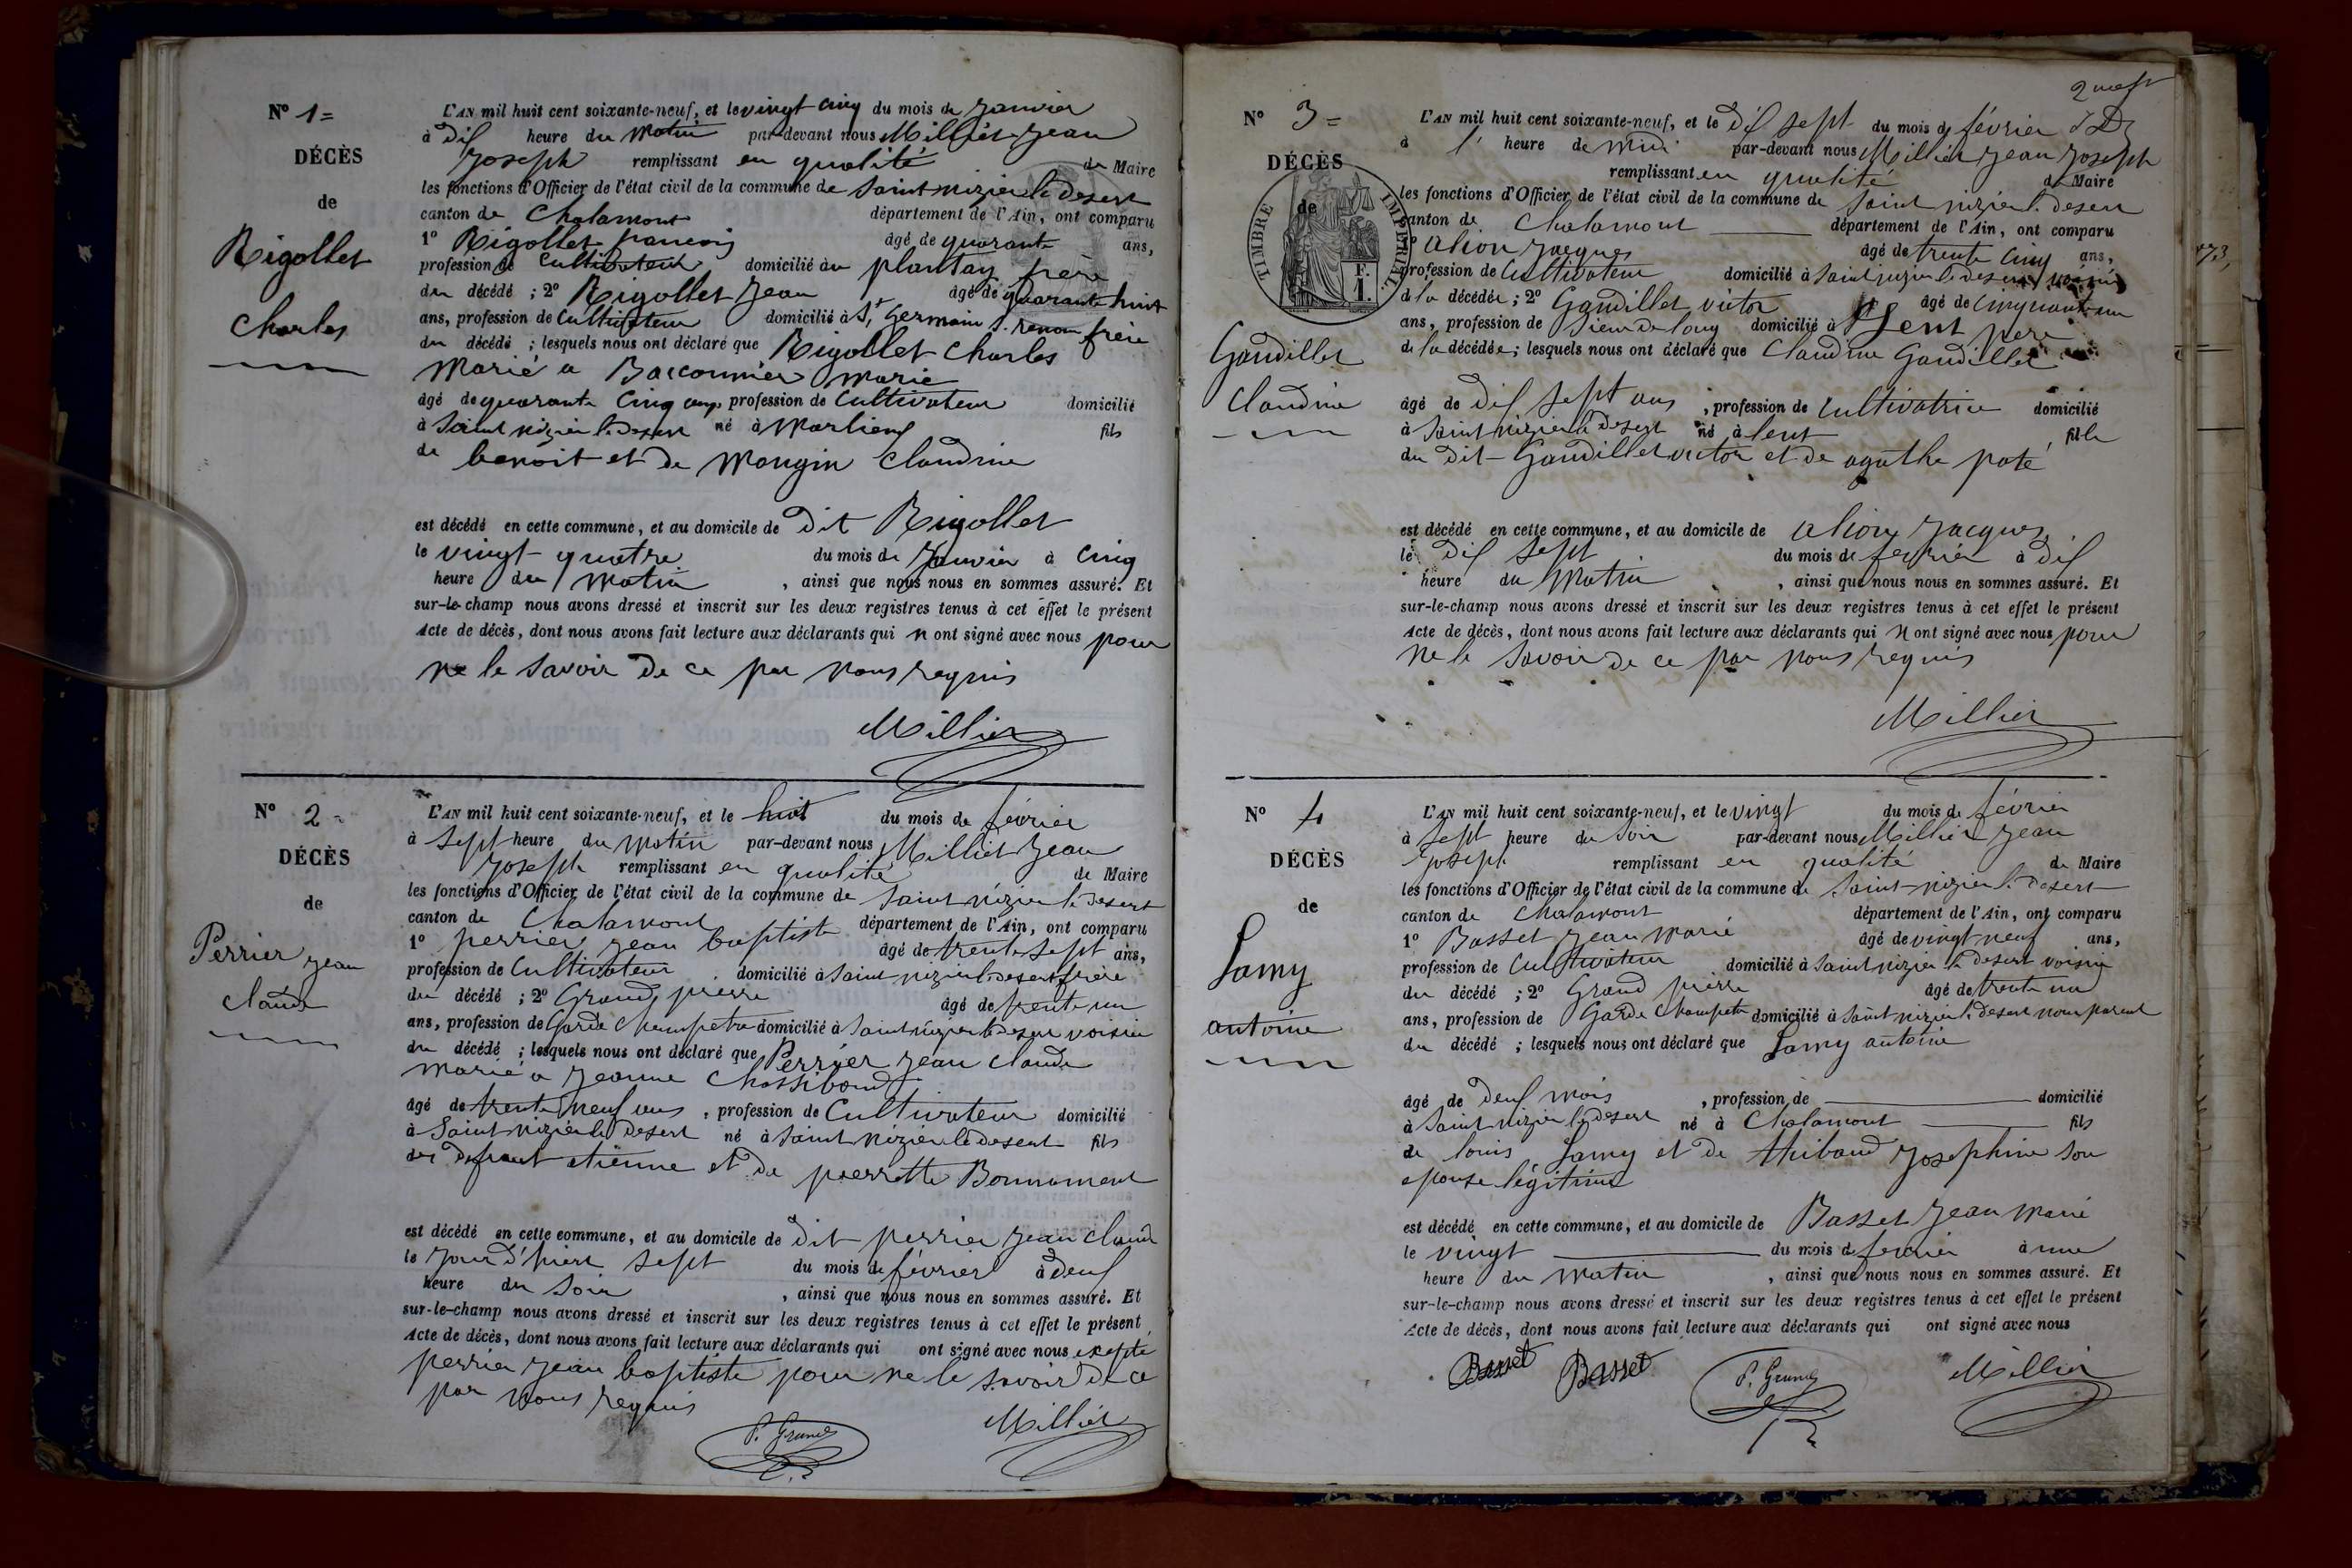 N° 1=
DÉCÈS
de
Rigollet
Charles
L'AN mil huit cent soixante-neuf, et le vingt cinq du mois de Janvier
à dix heure du matin par-devant nous Milliet Jean
Joseph remplissant en qualité de Maire
les fonctions d'Officier de l'état civil de la commune de Saint nizier le desert
canton de Chalamont département de l'Ain, ont comparu
1° Rigollet francois âgé de quarante ans,
profession de Cultivateur domicilié au plantay frère
du décédé ; 2° Rigollet Jean âgé de quarante huit
ans, profession de Cultivateur domicilié à St Germain s. renom frère
du décédé ; lesquels nous ont déclaré que Rigollet Charles
Marié a Marie
âgé de quarante Cinq ans profession de Cultivateur domicilié
à Saint nizier le Desert né à Marlieux fils
de benoit et de Mongin Claudine
est décédé en cette commune, et au domicile de dit Rigollet
le vingt quatre du mois de Janvier à cinq
heure du Matin , ainsi que nous nous en sommes assuré. Et
sur-le-champ nous avons dressé et inscrit sur les deux registres tenus à cet effet le présent
Acte de décès, dont nous avons fait lecture aux déclarants qui n ont signé avec nous pour
ne le savoir de ce par nous requis
Milliet
N° 2=
DÉCÈS
de
Perrier Jean
claude
L'AN mil huit cent soixante-neuf, et le huit du mois de février
à Sept heure du Matin par-devant nous Milliet Jean
Joseph remplissant en qualité de Maire
les fonctions d'Officier de l'état civil de la commune de Saint nizier le desert
canton de Chalamont département de l'Ain, ont comparu
1° perrier Jean baptiste âgé de trente sept ans,
profession de Cultivateur domicilié à Saint nizier le desert frère
du décédé ; 2° Grand pierre âgé de trente un
ans, profession de Garde Champetre domicilié à Saint nizier le desert voisin
du décédé ; lesquels nous ont déclaré que Perrier Jean claude
Marié a Jeanne
âgé de trente neuf ans , profession de Cultivateur domicilié
à Saint nizier le Desert né à Saint nizier le desert fils
de defunt etienne et de pierrette Bonnament
est décédé en cette commune, et au domicile de dit perrier Jean claude
le Jour d'hiert sept du mois de février à deux
heure du Soir , ainsi que nous nous en sommes assuré. Et
sur-le-champ nous avons dressé et inscrit sur les deux registres tenus à cet effet le présent
Acte de décès, dont nous avons fait lecture aux déclarants qui ont signé avec nous excepté
perrier Jean baptiste pour ne le savoir de ce
par nous requis
P. Grand
Milliet
N° 3=
DÉCÈS
de
TIMBRE IMPÉRIAL.
F.
1.
Gaudillet
Claudine
L'AN mil huit cent soixante-neuf, et le dix sept du mois de février
à 1 heure de midi par-devant nous Milliet Jean Joseph
remplissant en qualité de Maire
les fonctions d'Officier de l'état civil de la commune de Saint nizier le desert
canton de Chalamont département de l'Ain, ont comparu
1° alion Jacques âgé de trente cinq ans,
profession de Cultivateur domicilié à Saint nizier le desert voisin
de la décédée ; 2° Gaudillet victor âgé de cinquante un
ans, profession de Sieur de long domicilié à lent père
de la décédée ; lesquels nous ont déclaré que Claudine Gaudillet
âgé de dix sept ans , profession de Cultivatrice domicilié
à Saint nizier le Desert né à lent fille
du dit Gaudillet victor et de agathe paté
est décédé en cette commune, et au domicile de alion Jacques
le dix sept du mois de fevrier à dix
heure du Matin , ainsi que nous nous en sommes assuré. Et
sur-le-champ nous avons dressé et inscrit sur les deux registres tenus à cet effet le présent
Acte de décès, dont nous avons fait lecture aux déclarants qui n ont signé avec nous pour
ne le savoir de ce par nous requis
Milliet
N° 4
DÉCÈS
de
Lamy
antoine
L'AN mil huit cent soixante-neuf, et le vingt du mois de février
à Sept heure du Soir par-devant nous Milliet Jean
Joseph remplissant en qualité de Maire
les fonctions d'Officier de l'état civil de la commune de Saint nizier le desert
canton de Chalamont département de l'Ain, ont comparu
1° Basset Jean Marie âgé de vingt neuf ans,
profession de Cultivateur domicilié à Saint nizier le desert voisin
du décédé ; 2° Grand pierre âgé de trente un
ans, profession de Garde Champetre domicilié à Saint nizier le desert non parent
du décédé ; lesquels nous ont déclaré que Lamy antoine
âgé de deux mois , profession de domicilié
à Saint nizier le desert né à Chalamont fils
de louis Lamy et de thibaud Josephine son
epouse légitime
est décédé en cette commune, et au domicile de Basset Jean Marie
le vingt du mois de fevrier à une
heure du matin , ainsi que nous nous en sommes assuré. Et
sur-le-champ nous avons dressé et inscrit sur les deux registres tenus à cet effet le présent
Acte de décès, dont nous avons fait lecture aux déclarants qui ont signé avec nous
Basset Basset P. Grand Milliet